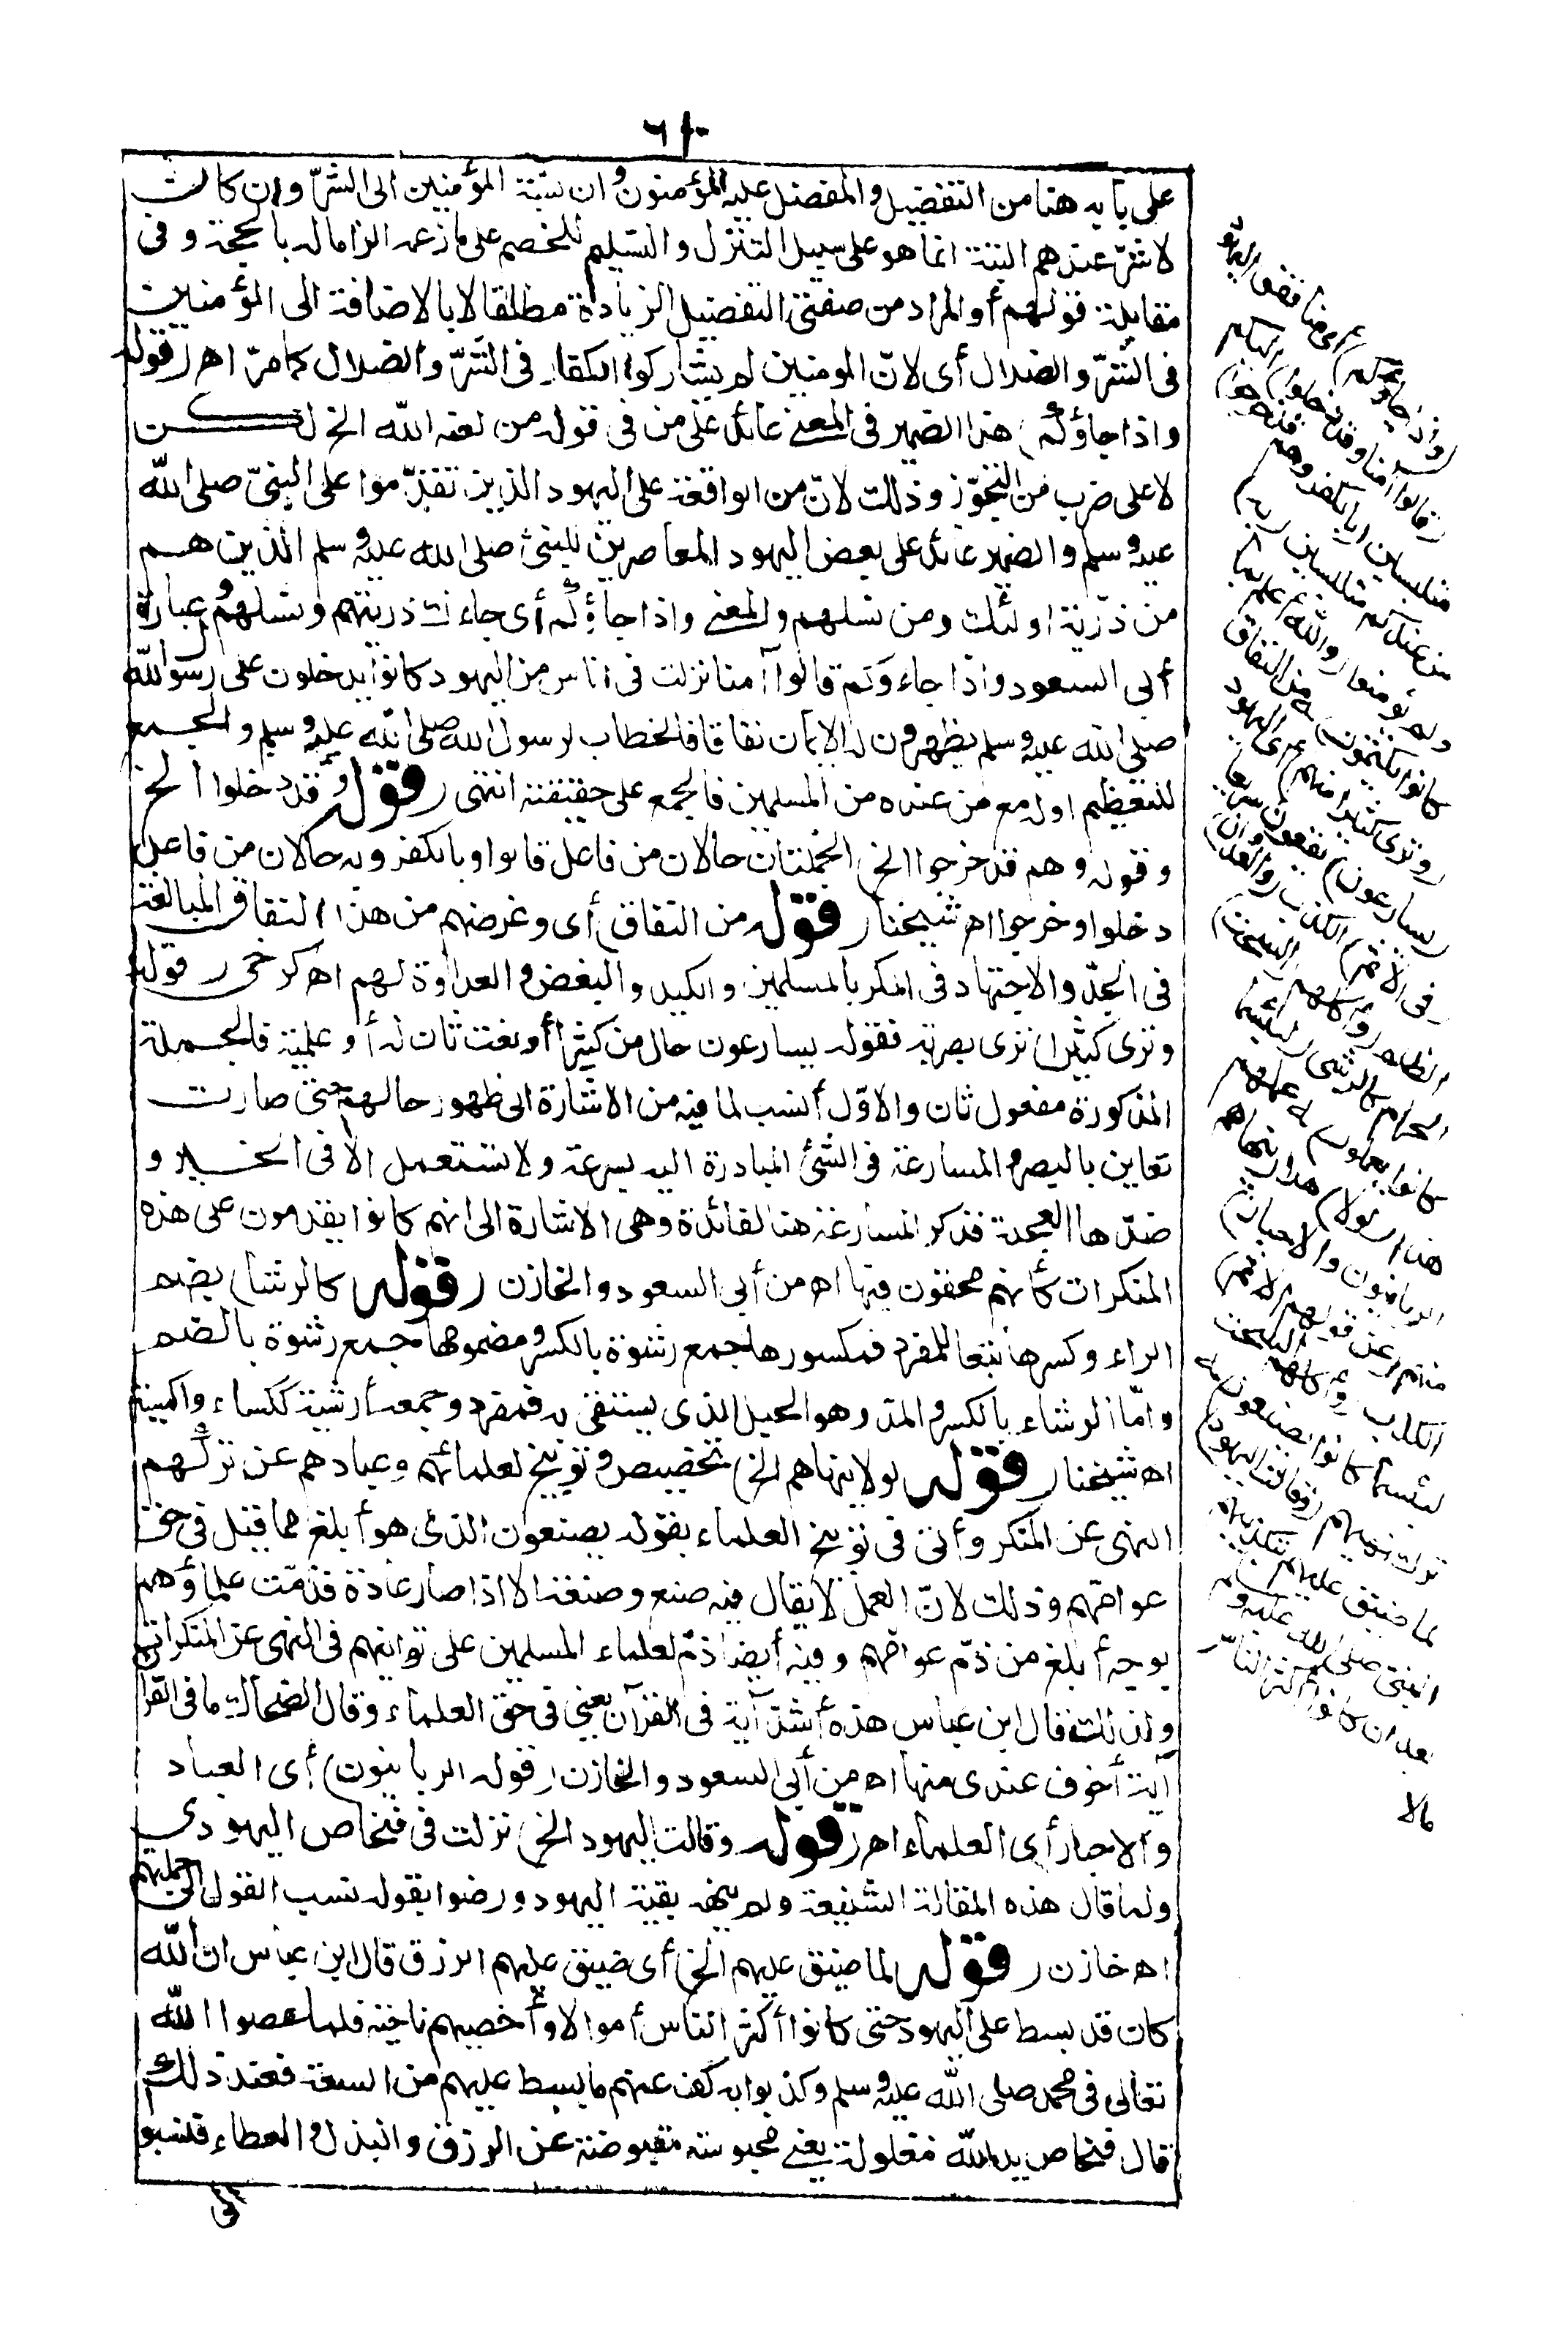 ٦١٠
على بابه هنا من التفضيل والمفضل عليه المؤمنون وان نسبة المؤمنين الى الشرّ وان كانت
لا شرّ عندهم البتة انما هو على سبيل التنزل والتسليم للخصم على ما زعمه الزاما له بالحجة وفى
مقابلة قولهم أو المراد من صيغتى التفضيل الزيادة مطلقا لا بالاضافة الى المؤمنين
فى الشرّ والضلال أى لانّ المومنين لم يشاركوا الكفار فى الشرّ والضلال كما مرّ اهـ (قوله
واذا جاؤكم) هذا الضمير فى المعنى عائد على من فى قوله من لعنه الله الخ لكن
لا على ضرب من التجوّز وذلك لانّ من الواقعة على اليهود الذين تقدّموا على النبىّ صلى الله
عليه وسلم والضمير عائد على بعض اليهود المعاصرين للنبىّ صلى الله عليه وسلم الذين هم
من ذرّية اولئك ومن نسلهم والمعنى واذا جاؤكم أى جاءت ذريتهم ونسلهم وعبارة
أبى السعود واذا جاءوكم قالوا آمنا نزلت فى اناس من اليهود كانوا يدخلون على رسول الله
صلى الله عليه وسلم يظهرون له الايمان نفاقا فالخطاب لرسول الله صلى الله عليه وسلم والجمع
للتعظيم اوله مع من عنده من المسلمين فالجمع على حقيقته انتهى (قوله وقد دخلوا الخ
وقوله وهم قد خرجوا الخ) الجملتان حالان من فاعل قالوا وبالكفر وبه حالان من فاعل
دخلوا وخرجوا اهـ شيخنا (قوله من النفاق) أى وغرضهم من هذا النفاق المبالغة
فى الجدّ والاجتهاد فى المكر بالمسلمين والكيد والبغض والعداوة لهم اهـ كرخى (قوله
وترى كثيرا) ترى بصرية فقوله يسارعون حال من كثيرا أو نعت ثان له أو علمية فالجملة
المذكورة مفعول ثان والاوّل أنسب لما فيه من الاشارة الى ظهور حالهم حتى صارت
تعاين بالبصر والمسارعة فى الشئ المبادرة اليه بسرعة ولا تستعمل الا فى الخير و
ضدّها العجلة فذكر المسارعة هنا لفائدة وهى الاشارة الى انهم كانوا يقدمون على هذه
المنكرات كأنهم محقون فيها اهـ من أبى السعود والخازن (قوله كالرشا) بضم
الراء وكسرها تبعا للمفرد فمكسورها جمع رشوة بالكسر ومضمومها جمع رشوة بالضم
وامّا الرشاء بالكسر والمد وهو الحبل الذى يستقى به فمفرد وجمعه أرشية ككساء واكسية
اهـ شيخنا (قوله لولا ينهاهم الخ) تحضيض وتوبيخ لعلمائهم وعبادهم عن تركهم
النهى عن المنكر وأتى فى توبيخ العلماء بقوله يصنعون الذى هو أبلغ مما قيل فى حق
عوامّهم وذلك لانّ العمل لا يقال فيه صنع وصنعة الا اذا صار عادة فذمّت علماؤهم
بوجه أبلغ من ذمّ عوامّهم وفيه أيضا ذمّ لعلماء المسلمين على توانيهم فى النهى عن المنكرات
ولذلك قال ابن عباس هذه أشدّ آية فى القرآن يعنى فى حق العلماء وقال الضحاك ما فى القرآ
آية أخوف عندى منها اهـ من أبى السعود والخازن (قوله الربانيون) أى العباد
والاحبار أى العلماء اهـ (قوله وقالت اليهود الخ) نزلت فى فنحاص اليهودى
ولما قال هذه المقالة الشنيعة ولم ينهه بقية اليهود ورضوا بقوله نسب القول الى جملتهم
اهـ خازن (قوله لما ضيق عليهم الخ) أى ضيق عليهم الرزق قال ابن عباس ان الله
كان قد بسط على اليهود حتى كانوا أكثر الناس أموالا وأخصبهم ناحية فلما عصوا الله
تعالى فى محمد صلى الله عليه وسلم وكذبوا به كف عنهم ما بسط عليهم من السعة فعند ذلك
قال فنحاص يد الله مغلولة يعنى محبوسة مقبوضة عن الرزق والبذل والعطاء فنسبو
(واذا جاؤكم) أى منافقو اليهود
(قالوا آمنا وقد دخلوا) اليكم
متلبسين (بالكفر وهم قد خرجوا)
من عندكم متلبسين (به)
ولم يؤمنوا (والله أعلم بما
كانوا يكتمون) ـه من النفاق
(وترى كثيرا منهم) أى اليهود
(يسارعون) يقعون سريعا
(فى الاثم) الكذب (والعدوان)
الظلم (وأكلهم السحت)
الحرام كالرشى (لبئسما
كانوا يعملون) ـه عملهم
هذا (لولا) هلا (ينهاهم
الربانيون والاحبار)
منهم (عن قولهم الاثم)
الكذب (وأكلهم السحت
لبئسما كانوا يصنعون) ـه
ترك نهيهم (وقالت اليهود)
لما ضيق عليهم بتكذيبهم
النبىّ صلى الله عليه وسلم
بعد ان كانوا أكثر الناس
مالا